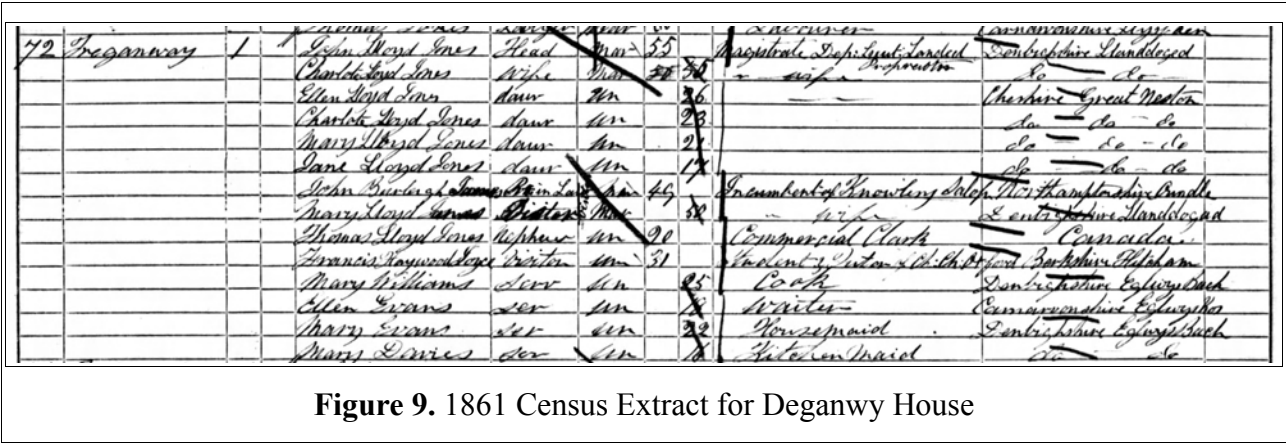 72 Treganway 1 John Lloyd Jones Head Mar 55 Magistrate Dep: Lieut: Landed Proprietor Denbighshire Llanddoged
Charlote Loyd Jones wife Mar 55 " wife do do
Ellen Lloyd Jones daur un 26 Cheshire Great Neston
Charlote Loyd Jones daur un 23 do do do
Mary Lloyd Jones daur un 21 do do do
Jane Lloyd Jones daur un 17 do do do
John Burleigh James Br in Law 49 Incumbent of Knowling Salop Northamptonshire Oundle
Mary Lloyd James Sister Mar 50 " wife Denbighshire Llanddoged
Thomas Lloyd Jones Nephew un 20 Commercial Clark Canada
Francis Haywood Joyce Visitor un 31 Student & Tutor of Ch: Ch: Oxford Berkshire
Mary Williams serv un 25 Cook Denbighshire Eglwys Bach
Ellen Evans ser un Waiter Carnarvonshire Eglwys Rhos
Mary Evans ser un 22 Housemaid Denbighshire Eglwys Bach
Mary Davies ser un 16 Kitchen Maid do do
Figure 9. 1861 Census Extract for Deganwy House